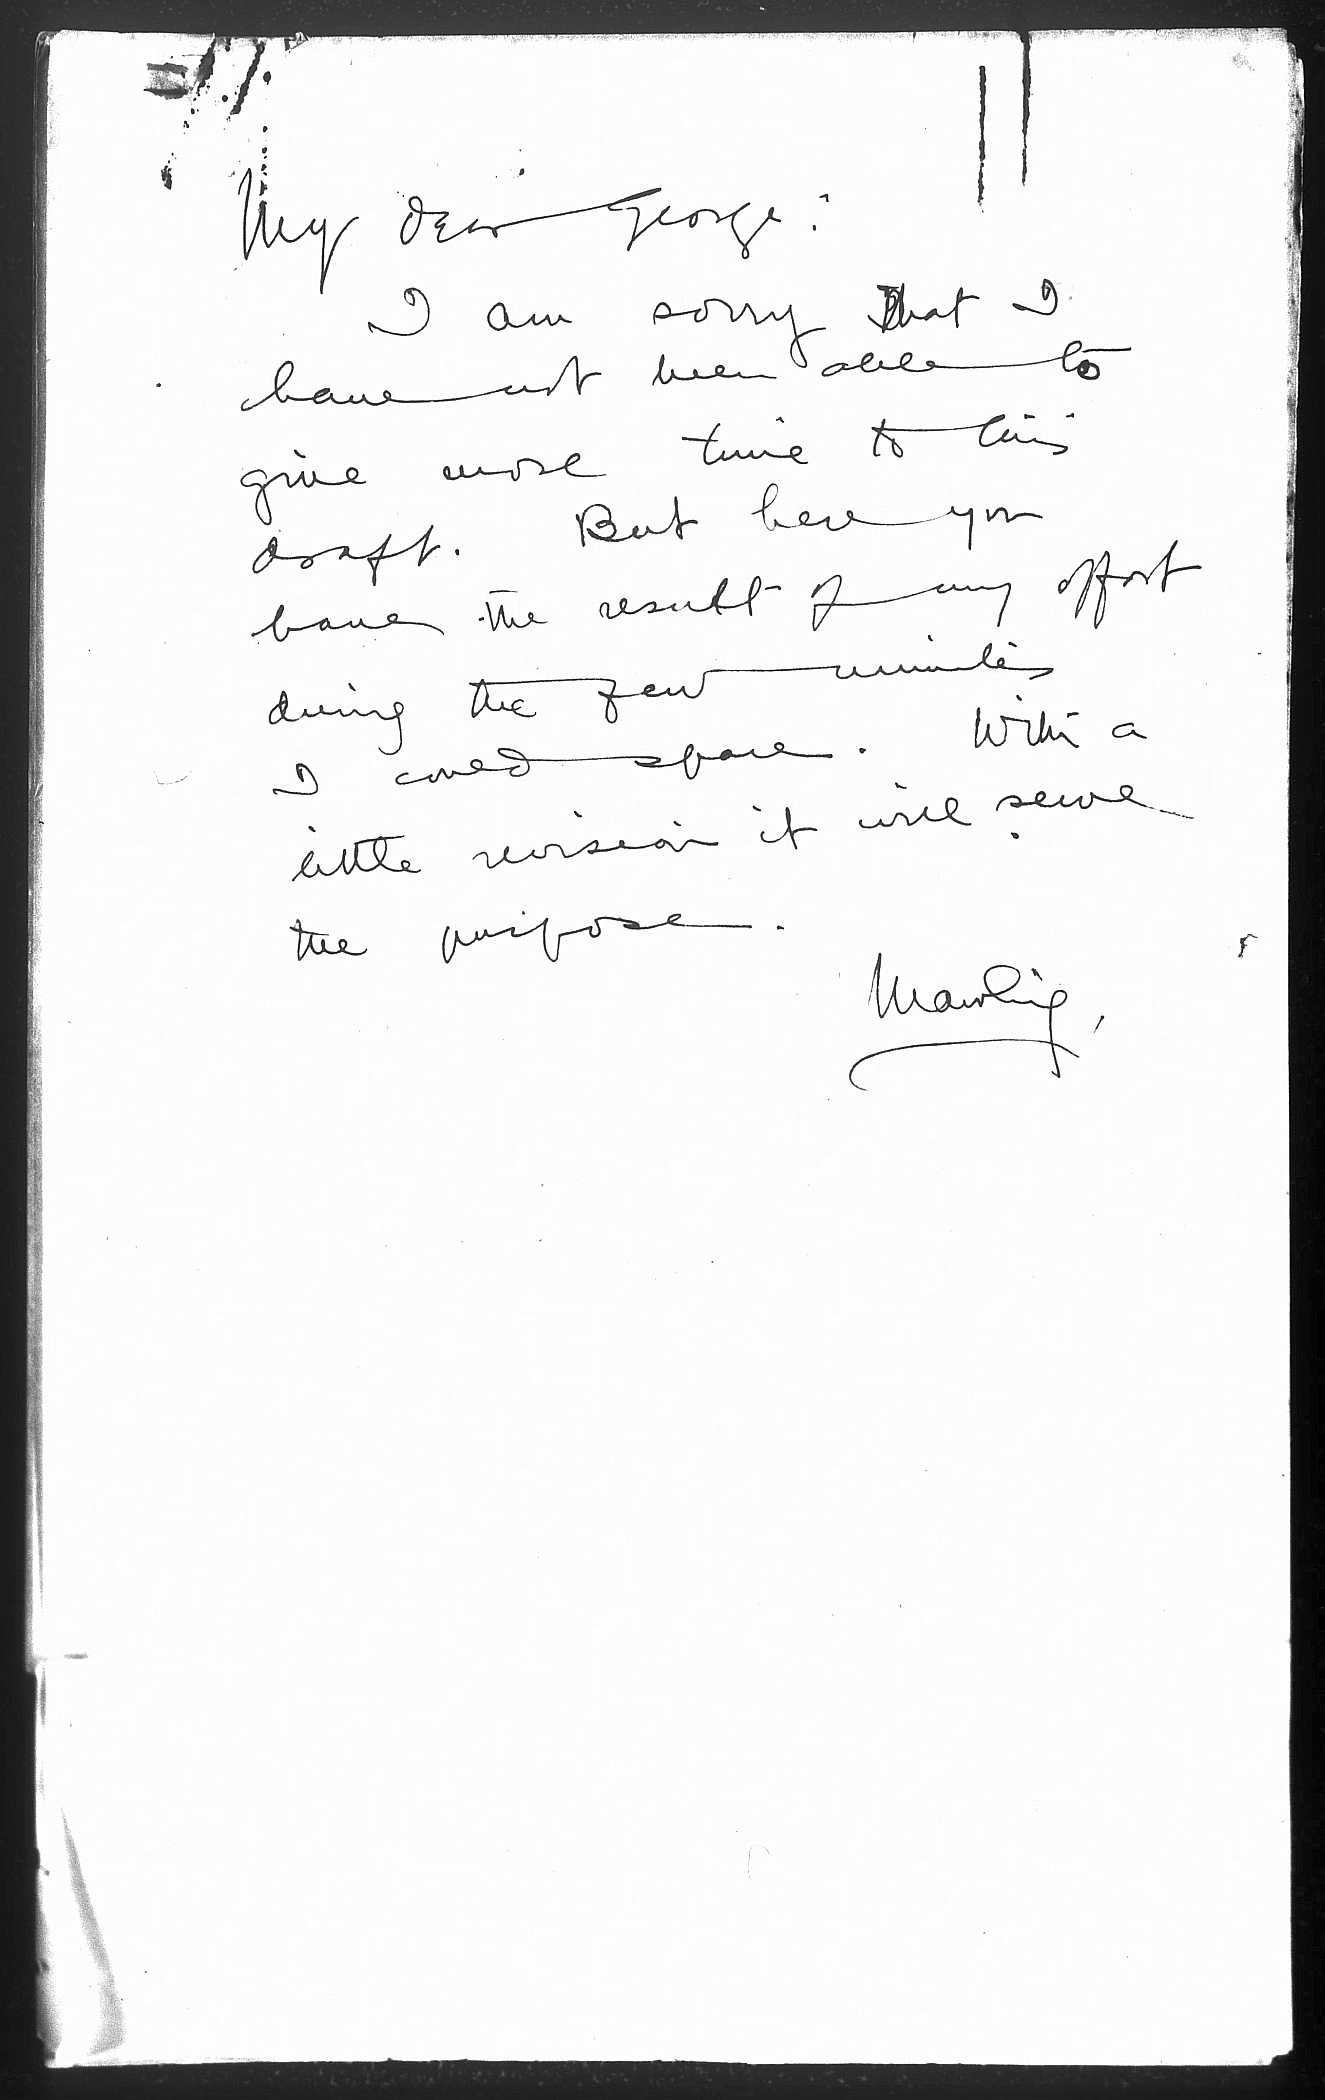 My dear George:
I am sorry that I
have not been able to
give more time to this
draft. But here you
have the result of my effort
during the few minutes
I could spare. With a
little revision it will serve
the purpose.